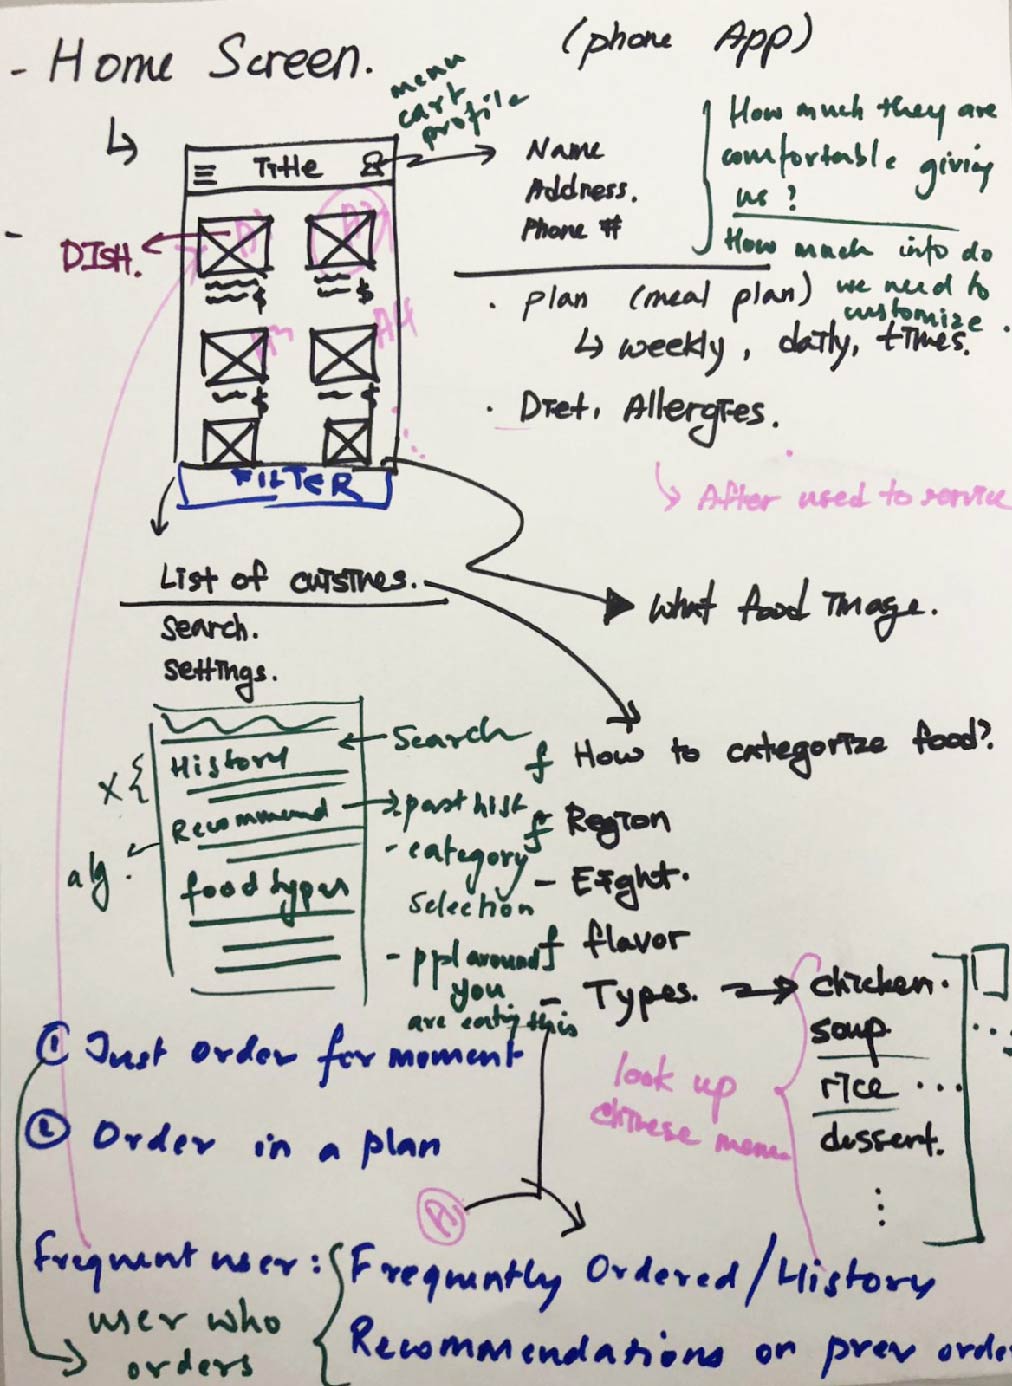 - Home Screen.
(phone App)
menu
cart
profile
Title
Name
Address.
Phone #
How much they are
comfortable giving
us?
How much info do
we need to
customize.
DISH.
$
$
A4
$
$
FILTER
. plan (meal plan)
↳ weekly, daily, times.
. Diet, Allergies.
↳ After used to service
List of cuisines.
Search.
Settings.
What food Image.
History
Recommend
food types
X {
alg.
Search
past hist
- category
selection
- ppl around
you
are eating this
How to categorize food?
Region
- Eight.
flavor
- Types.
chicken.
soup
rice ...
dessert.
look up
chinese menu.
① Just order for moment
② Order in a plan
frequent user:
user who
orders
Frequently Ordered/History
Recommendations on prev orde